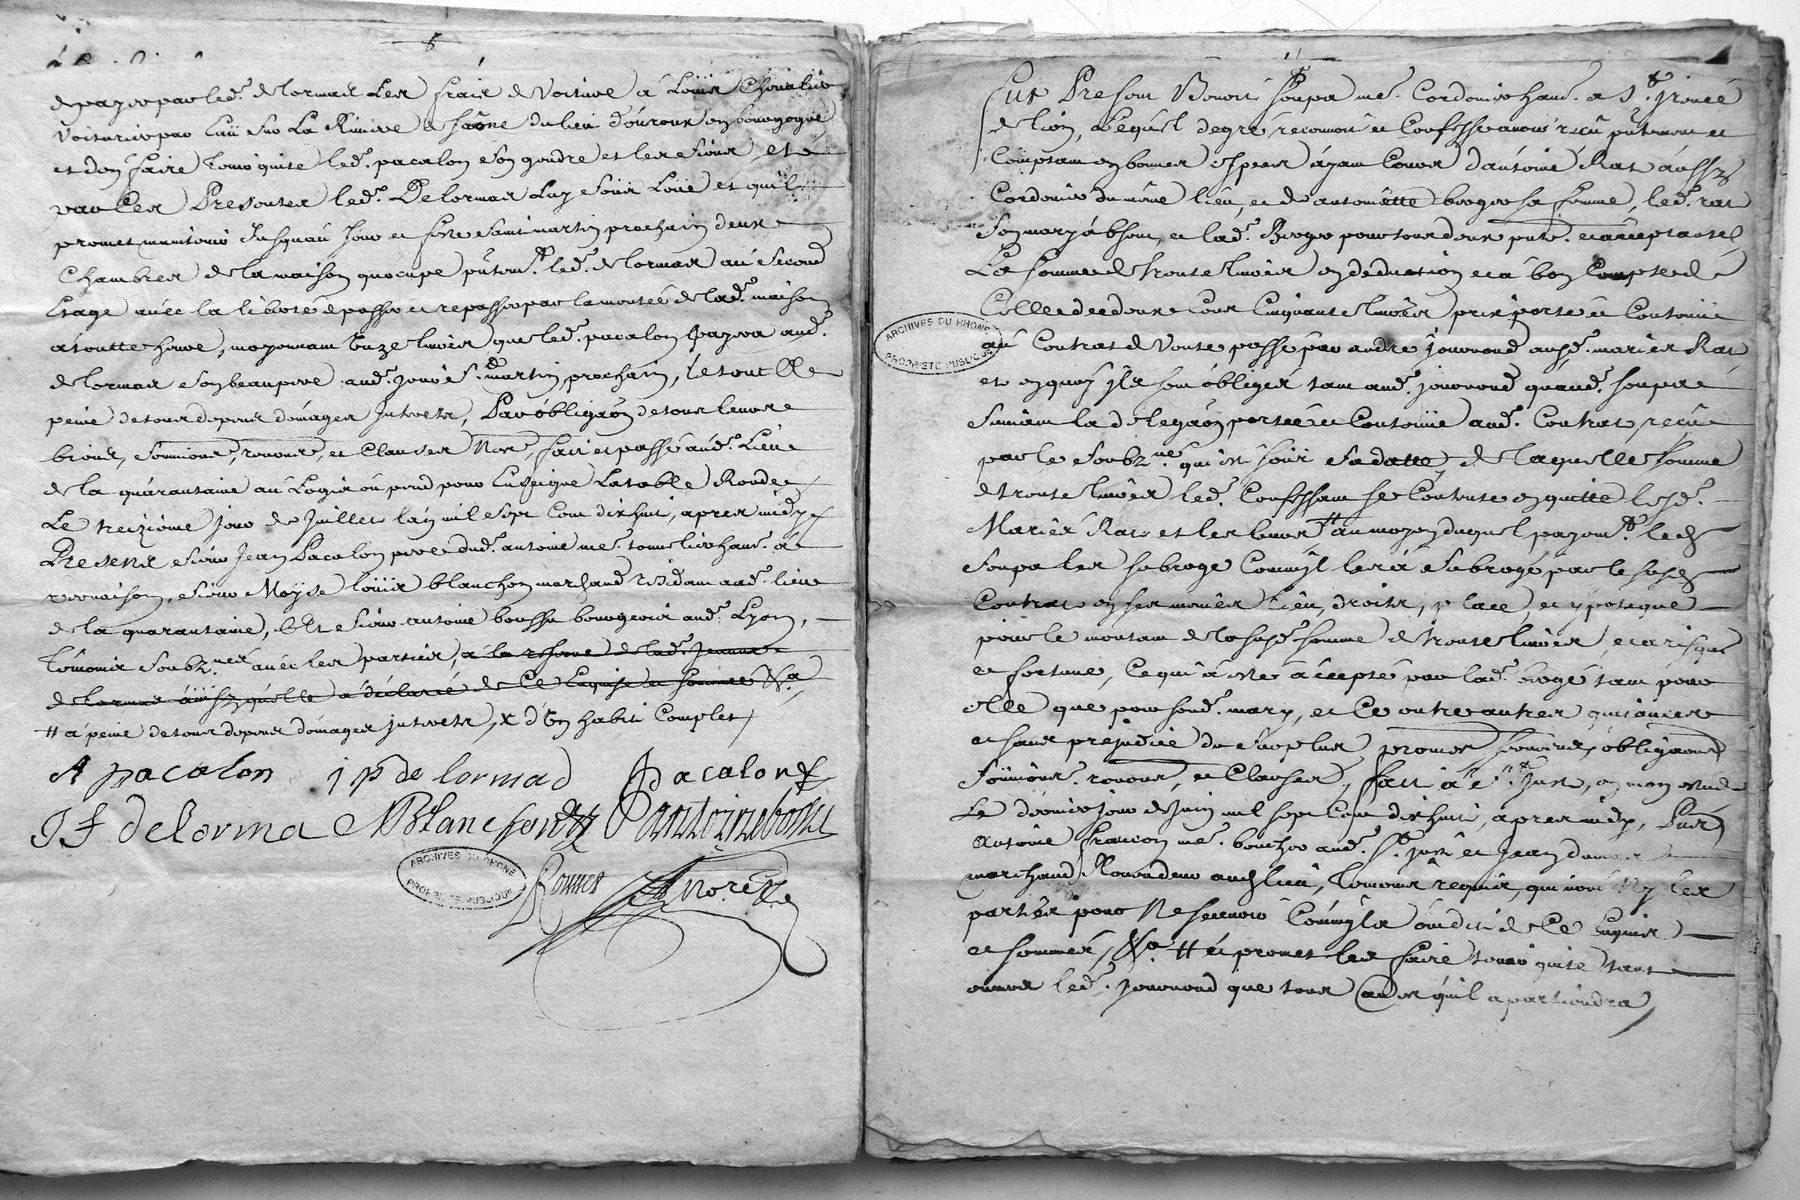 de payer par led. delormas les frais de voiture a Louis Chevalier
voiturier par Eau sur La Riviere de saône du lieu d'ouroux en bourgogne
et d'en faire tenir quite led. pacalon son gendre et les siens, et
par ces Presentes led. Delormas luy
promet maintenir Jusqu'au Jour et feste saint martin prochain deux
Chambres de la maison qu'ocupe putem.t led. de lormas au second
Etage avéc la liberté de passer et repasser par la montée de lad. maison
a toutte heure, moyennant livres que led. pacalon payera aud.
de lormas son beaupere aud. jour s.t martin prochain, le tout a
peine de tous depens domages Interets, Par obligaôn de tous leurs
biens, soumions, renons, et Clauses Nres, fait et passé aud. Lieu
de la quarantaine au Logis où pend pour Enseigne La table Ronde
Le treizieme jour de Juillet l'an mil sept Cent dixhuit, apres midy
Presents sieur Jean Pacalon pere dud. antoine me. tonnelier hant. a
, sieur Moyse loüis blanchon marchand residant aud. lieu
de la quarantaine, Et sieur antoine boussu bourgeois aud. Lyon,
temoins soubz.nez avéc les parties, a la reserve de lad. Jeanne
de lormas aussy qu'elle a déclaré de Ce Enquise et sommée
# a peine de tous depens domages interets, x d'un habit Complet
A pacalon j p de lormas J pacalon
J F delorma M Blanchon antoine bossu
Bonnet Morel
ARCHIVES DU RHONE
PROPRIETE PUBLIQUE
Fut Present Benoit Soupa me. Cordonier hant. a S.t jrenée
de lion, Lequel de gré reconnoit et Confesse avoir reçu putement et
Comptant en bonnes especes ayant Cours d'antoine Rat aussy
Cordonier du même lieu, et de antoinette broge sa femme, led. rat
son mary absent, et lad. Broge pour tous deux pnte. et acceptante
La somme de trente livres en deduction et à bon Compte de
Celle de deux Cent Cinquante livres prix porté et Contenü
au Contrat de Vente passé par andré jouvenod ausd. mariés Rat
et en quoy ils sont obligés tant aud. jouvenod quaud. soupa
suivant la delegaôn portée et Contenüe aud. Contrat, reçu
par le soubz.né qui sa datte, de laquelle somme
de trente livres led. Confessant se Contente en quitte lesd.
Mariés Rat et les leurs # au moyen duquel payem.t led.
soupa les subroge Comm'il les a subrogé par le susd.
Contrat en ses memes lieu, droits, place, et ypoteque
pour le montant de lasusd. somme de trente livres, et a risque
et fortune, Ce qui a eté accepté par lad. broge tant pour
elle que pour sond. mary, et Ce outre autres quitances
et sans prejudice du surplus, promes. obligaons
soumions. renons, et Clauses, fait a S.t Just, en mon etude
Le dernier jour de juin mil sept Cent dixhuit, apres midy, Pnts
Antoine francon me. boucher aud. S.t just et Jean
marchand Demeurant aud. lieu, temoins requis, qui n'ont Ny les
parties pour Ne scavoir Comm'ils ont dit de Ce Enquis
et sommés, # et promet les faire tenir quite tant
envers led. jouvenod que tous autres qu'il apartiendra
ARCHIVES DU RHONE
PROPRIETE PUBLIQUE